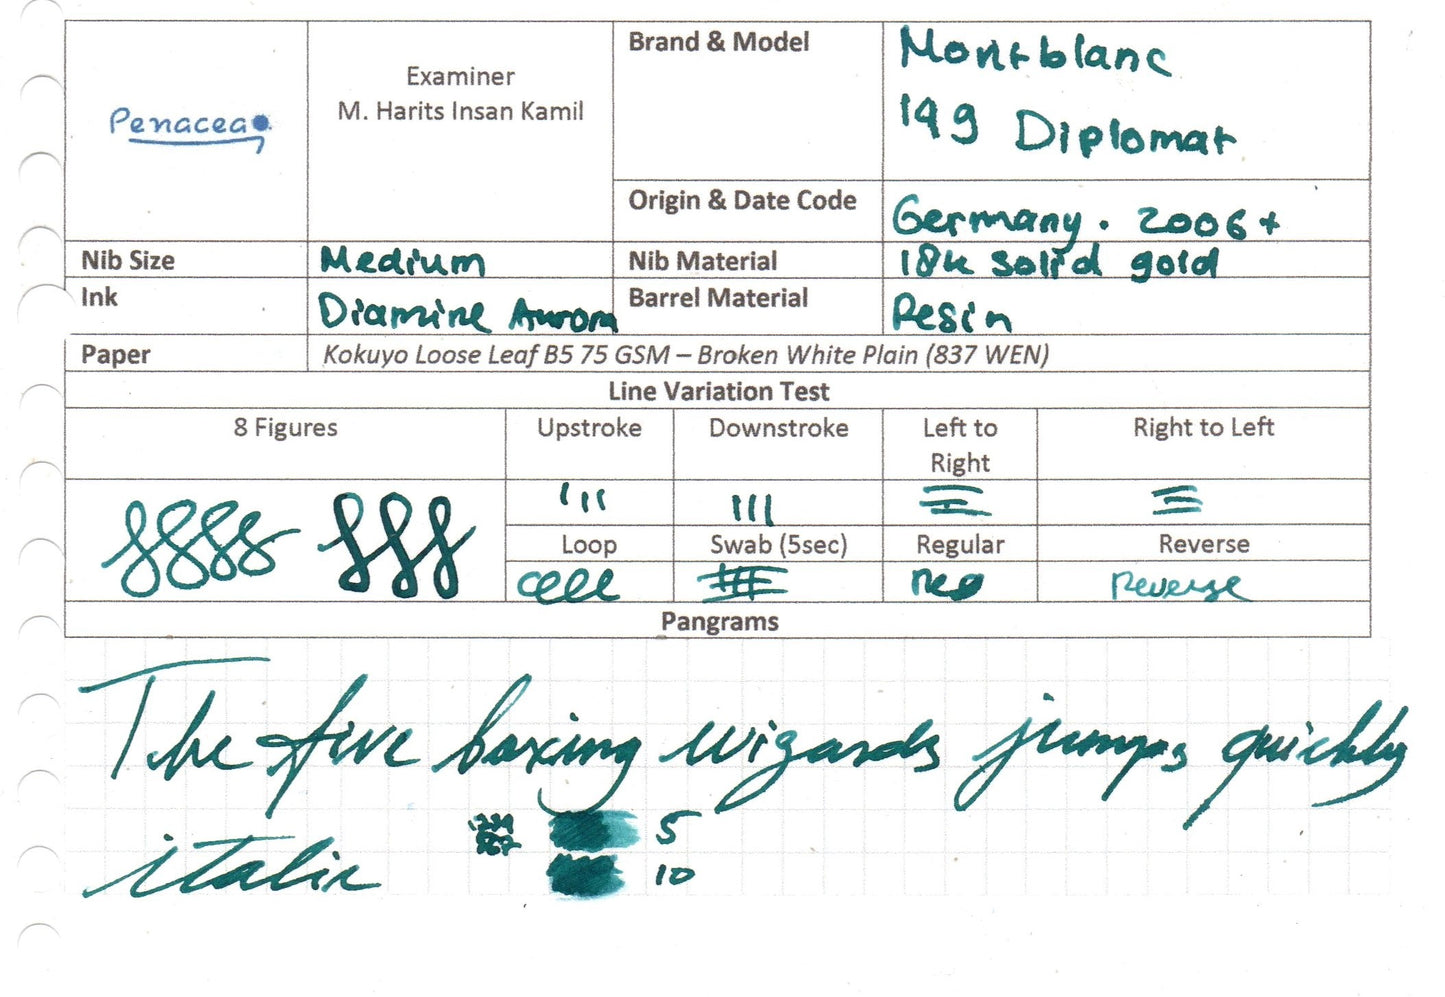 Penacea
Examiner
M. Harits Insan Kamil
Brand & Model
Montblanc
149 Diplomat
Origin & Date Code
Germany. 2006+
Nib Size
Medium
Nib Material
18k solid gold
Ink
Diamine Aurora
Barrel Material
Resin
Paper
Kokuyo Loose Leaf B5 75 GSM – Broken White Plain (837 WEN)
Line Variation Test
8 Figures
Upstroke
Downstroke
Left to
Right
Right to Left
Loop
Swab (5sec)
Regular
Reverse
Reg
Reverse
Pangrams
The five boxing wizards jumps quickly
1234
567
5
italic
10